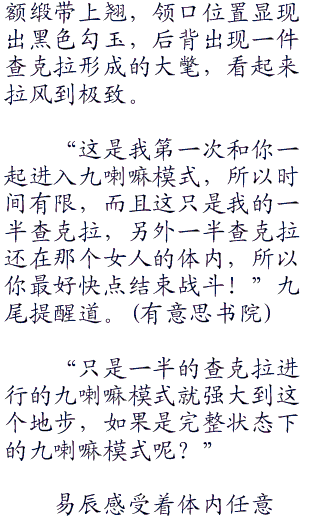 额缎带上翘，领口位置显现
出黑色勾玉，后背出现一件
查克拉形成的大氅，看起来
拉风到极致。
“这是我第一次和你一
起进入九喇嘛模式，所以时
间有限，而且这只是我的一
半查克拉，另外一半查克拉
还在那个女人的体内，所以
你最好快点结束战斗！”九
尾提醒道。(有意思书院)
“只是一半的查克拉进
行的九喇嘛模式就强大到这
个地步，如果是完整状态下
的九喇嘛模式呢？”
易辰感受着体内任意